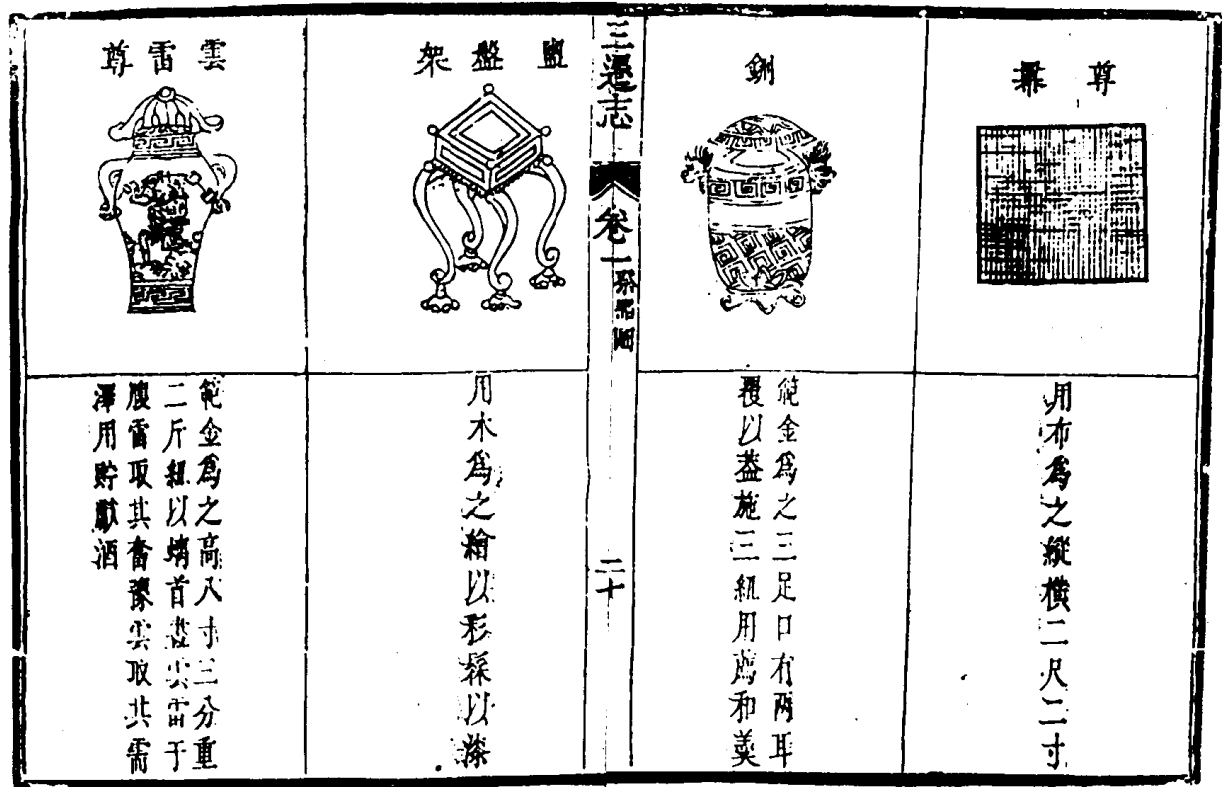 尊羃
用布爲之縱橫二尺二寸
鉶
範金爲之三足口有兩耳
覆以蓋施三紐用薦和羹
三遷志
卷一
祭器圖
二十
盥盤架
用木爲之繪以彩髹以漆
雲雷尊
範金爲之高八寸三分重
二斤紐以螭首畫雲雷于
腹雷取其奮豫雲取其需
澤用貯獻酒